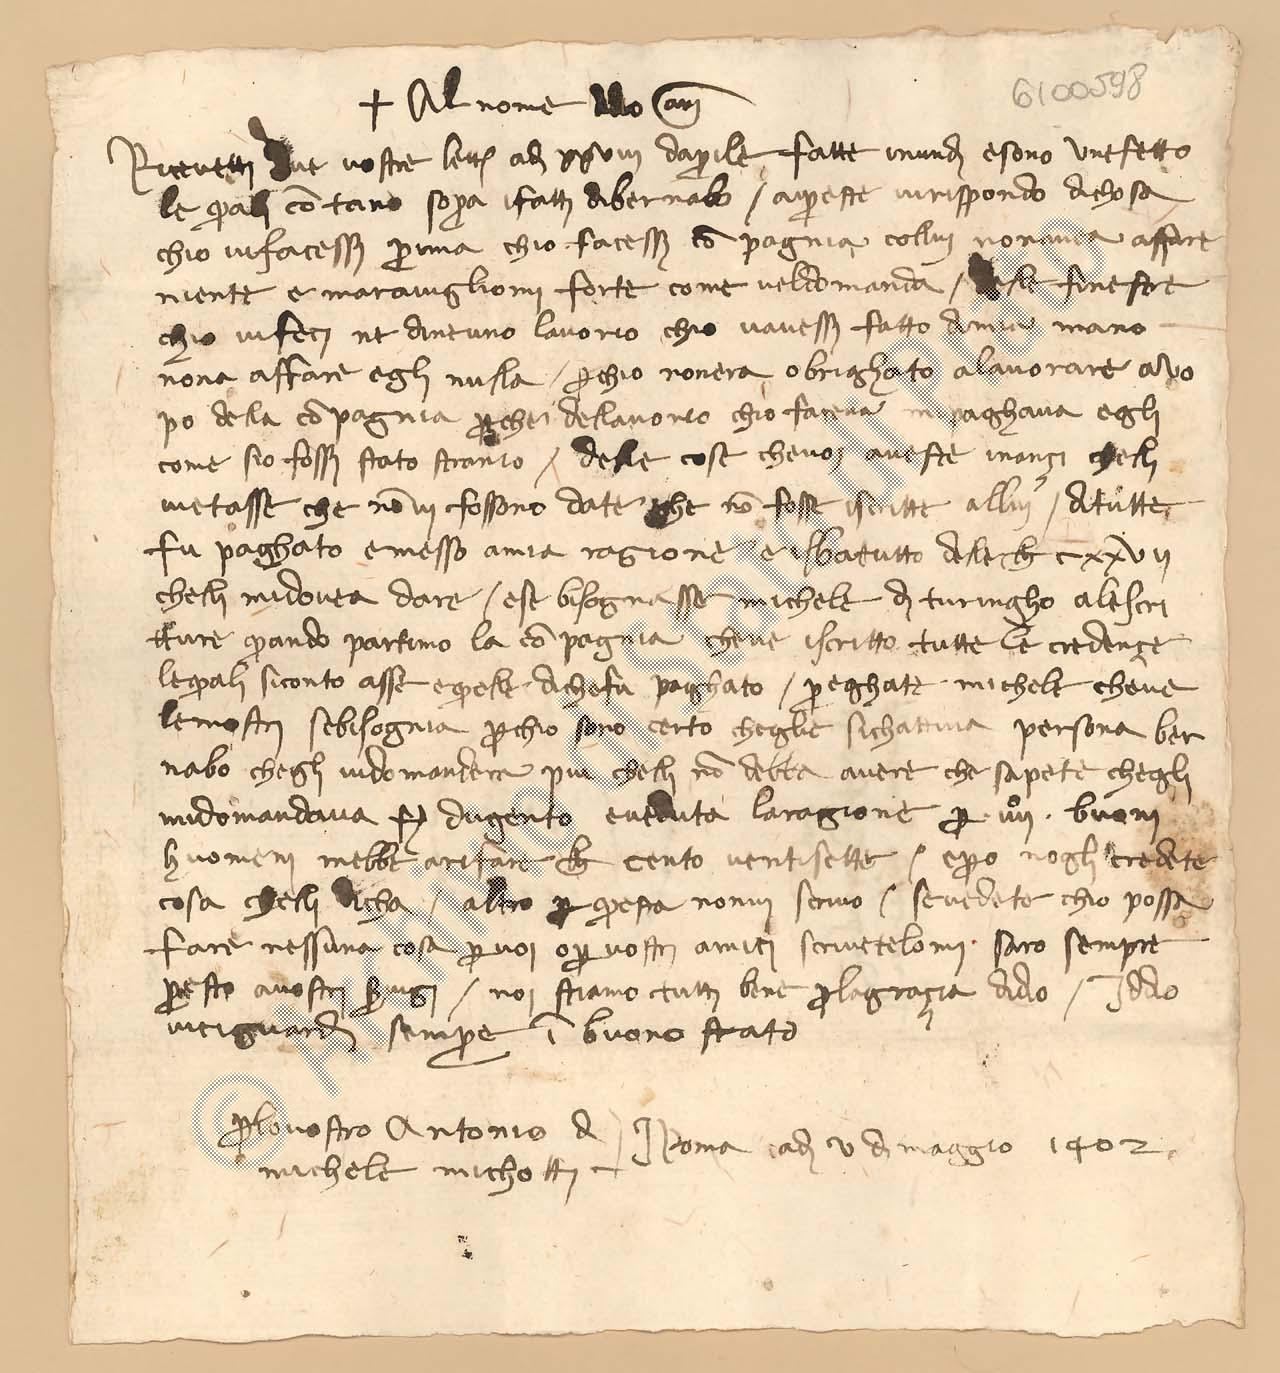 6100598
+ Al nome dio am
Ricevetti due vostre lett adj xxviij daprile fatte inundj esono unefetto
le quali contano sopra ifatti dibernabo / aqueste virispondo dichosa
chio vifacessj prima chio facessj conpagnia collui nonavea affare
niente e maravigliomi forte come veldomanda / delle finestre
chio vifecj ne dineuno lavorio chio vavessj fatto dimia mano
nona affare eglj nulla / perchio nonera obrighato alavorare avo
po dela conpagnia perche dellavorio chio faceva mipaghava eglj
come sio fossj stato stranio / delle cose chevoj aveste inanzi chellj
vietasse che novi fossono date che no fosse iscritte allui / ditutte
fu paghato emesso amia ragione e isbatutto dele lb cxxvij
chellj midovea dare / ese bisognasse michele dj turingho aleScri
tture quando partimo la conpagnia cheve iscritto tutte le credenze
lequali siconto asse equelle dichefu paghato / preghate michele cheve
lemostrj sebisognia perchio sono certo cheglie sichattiva persona ber
nabo cheglj vidomandera piu chellj no debba avere che sapete cheglj
midomandava dugento eveduta laragione per vij buoni
huomeni mebbe arifare lb cento ventisette / epero noglj credete
cosa chellj dicha / altro per questa nonvi scrivo / sevedete chio possa
fare nessuna cosa pervoi opervostrj amici scrivetelomi saro sempre
presto avostrj servigi / noj stiamo tuttj bene perlagrazia didio / Iddio
viciguardj sempre i buono stato
perlovostro Antonio di
michele michottj
Iroma adj v dj maggio 1402
© Archivio di Stato di Prato